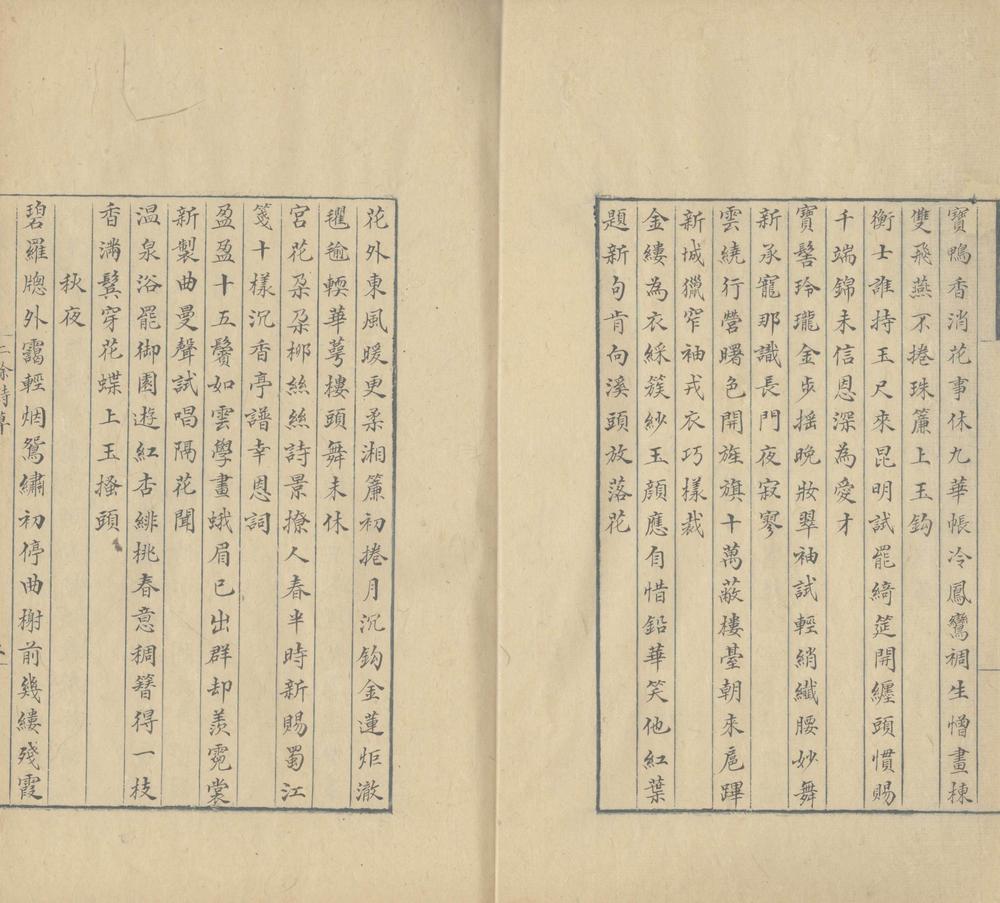 寶鴨香消花事休九華帳冷鳳鸞裯生憎畫棟
雙飛燕不捲珠簾上玉鈎
衡士誰持玉尺來昆明試罷綺筵開纏頭慣賜
千端錦未信恩深為愛才
寶髻玲瓏金步搖晚妝翠袖試輕綃纖腰妙舞
新承寵那識長門夜寂寥
雲繞行營曙色開旌旗十萬蔽樓臺朝來扈蹕
新城獵窄袖戎衣巧樣裁
金縷為衣綵簇紗玉顏應自惜鉛華笑他紅葉
題新句肯向溪頭放落花
花外東風暖更柔湘簾初捲月沉鈎金蓮炬澈
氍毹輭華萼樓頭舞未休
宮花朶朶柳絲絲詩景撩人春半時新賜蜀江
箋十樣沉香亭譜幸恩詞
盈盈十五鬢如雲學畫蛾眉已出群却羨霓裳
新製曲曼聲試唱隔花聞
温泉浴罷御園遊紅杏緋桃春意稠簪得一枝
香滿鬓穿花蝶上玉搔頭
秋夜
碧羅牕外靄輕烟鴛繡初停曲榭前幾縷殘霞